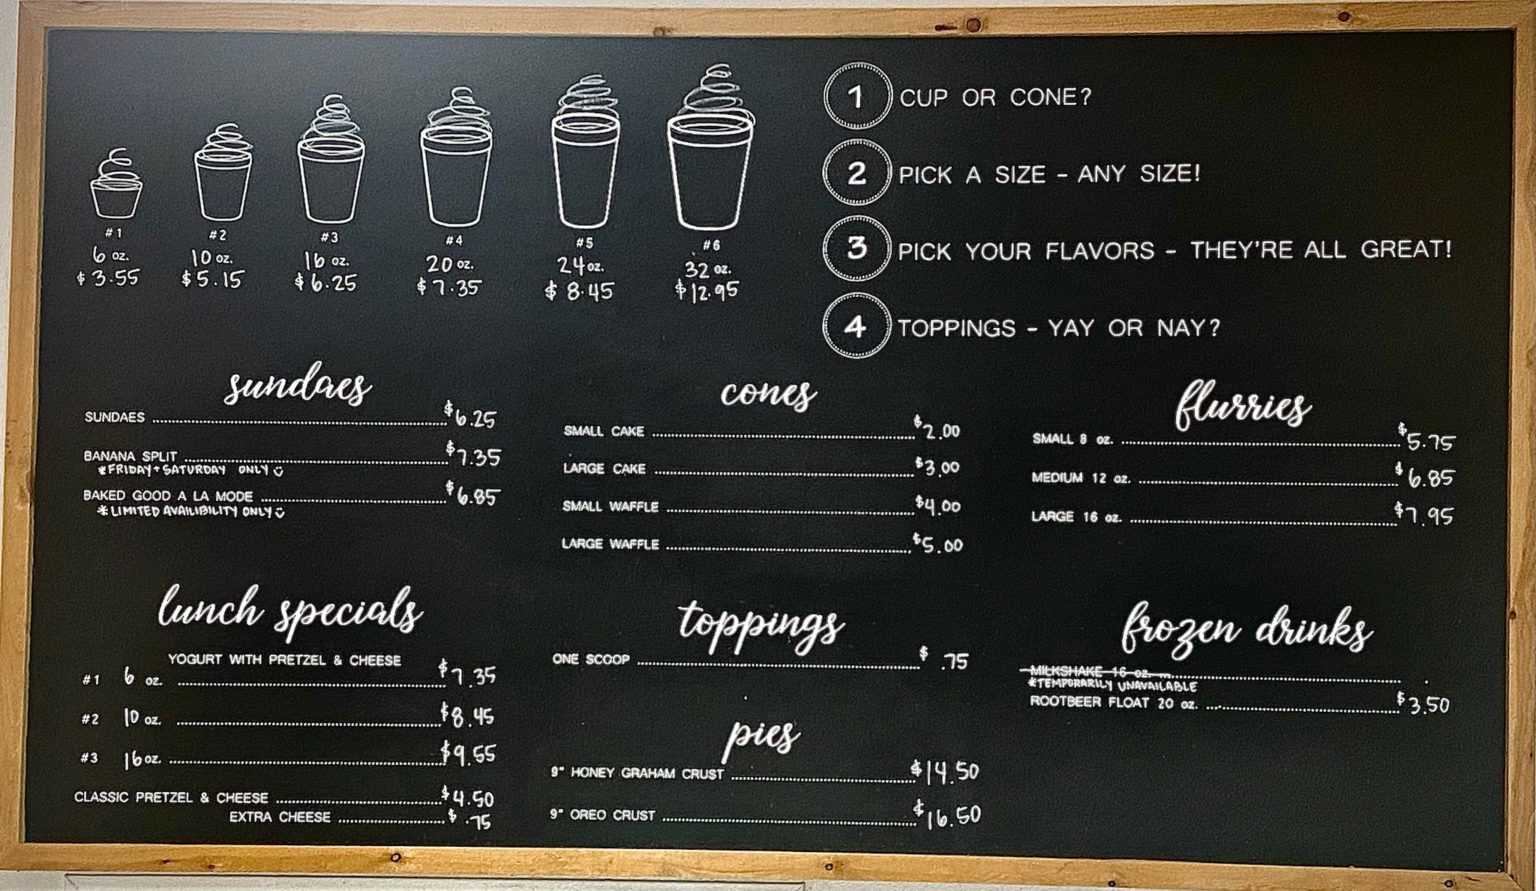 #1
6 oz.
$3.55
#2
10 oz.
$5.15
#3
16 oz.
$6.25
#4
20 oz.
$7.35
#5
24 oz.
$8.45
#6
32 oz.
$12.95
1 CUP OR CONE?
2 PICK A SIZE - ANY SIZE!
3 PICK YOUR FLAVORS - THEY'RE ALL GREAT!
4 TOPPINGS - YAY OR NAY?
sundaes
SUNDAES $6.25
BANANA SPLIT $7.35
*FRIDAY + SATURDAY ONLY
BAKED GOOD A LA MODE $6.85
*LIMITED AVAILIBILITY ONLY
cones
SMALL CAKE $2.00
LARGE CAKE $3.00
SMALL WAFFLE $4.00
LARGE WAFFLE $5.00
flurries
SMALL 8 oz. $5.75
MEDIUM 12 oz. $6.85
LARGE 16 oz. $7.95
lunch specials
YOGURT WITH PRETZEL & CHEESE
#1 6 oz. $7.35
#2 10 oz. $8.45
#3 16 oz. $9.55
CLASSIC PRETZEL & CHEESE $4.50
EXTRA CHEESE $.75
toppings
ONE SCOOP $.75
pies
9" HONEY GRAHAM CRUST $14.50
9" OREO CRUST $16.50
frozen drinks
MILKSHAKE 16 oz.
*TEMPORARILY UNAVAILABLE
ROOTBEER FLOAT 20 oz. $3.50